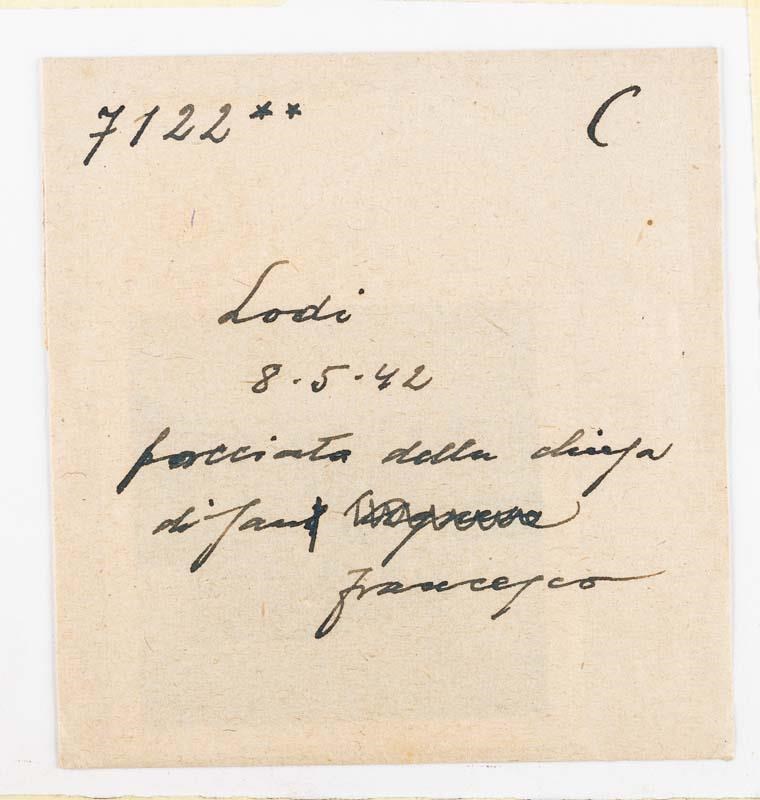 7122** C
Lodi
8.5.42
facciata della chiesa
di San
Francesco